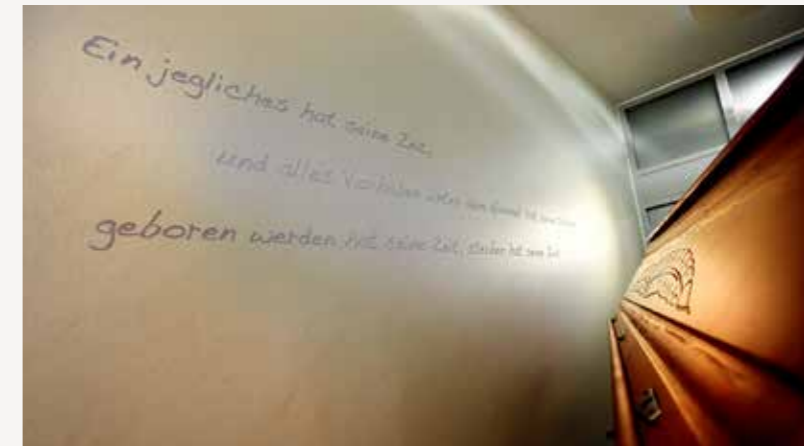 Ein jegliches hat seine Zeit,
und alles Vorhaben unter dem Himmel hat seine Stunde
geboren werden hat seine Zeit, sterben hat seine Zeit